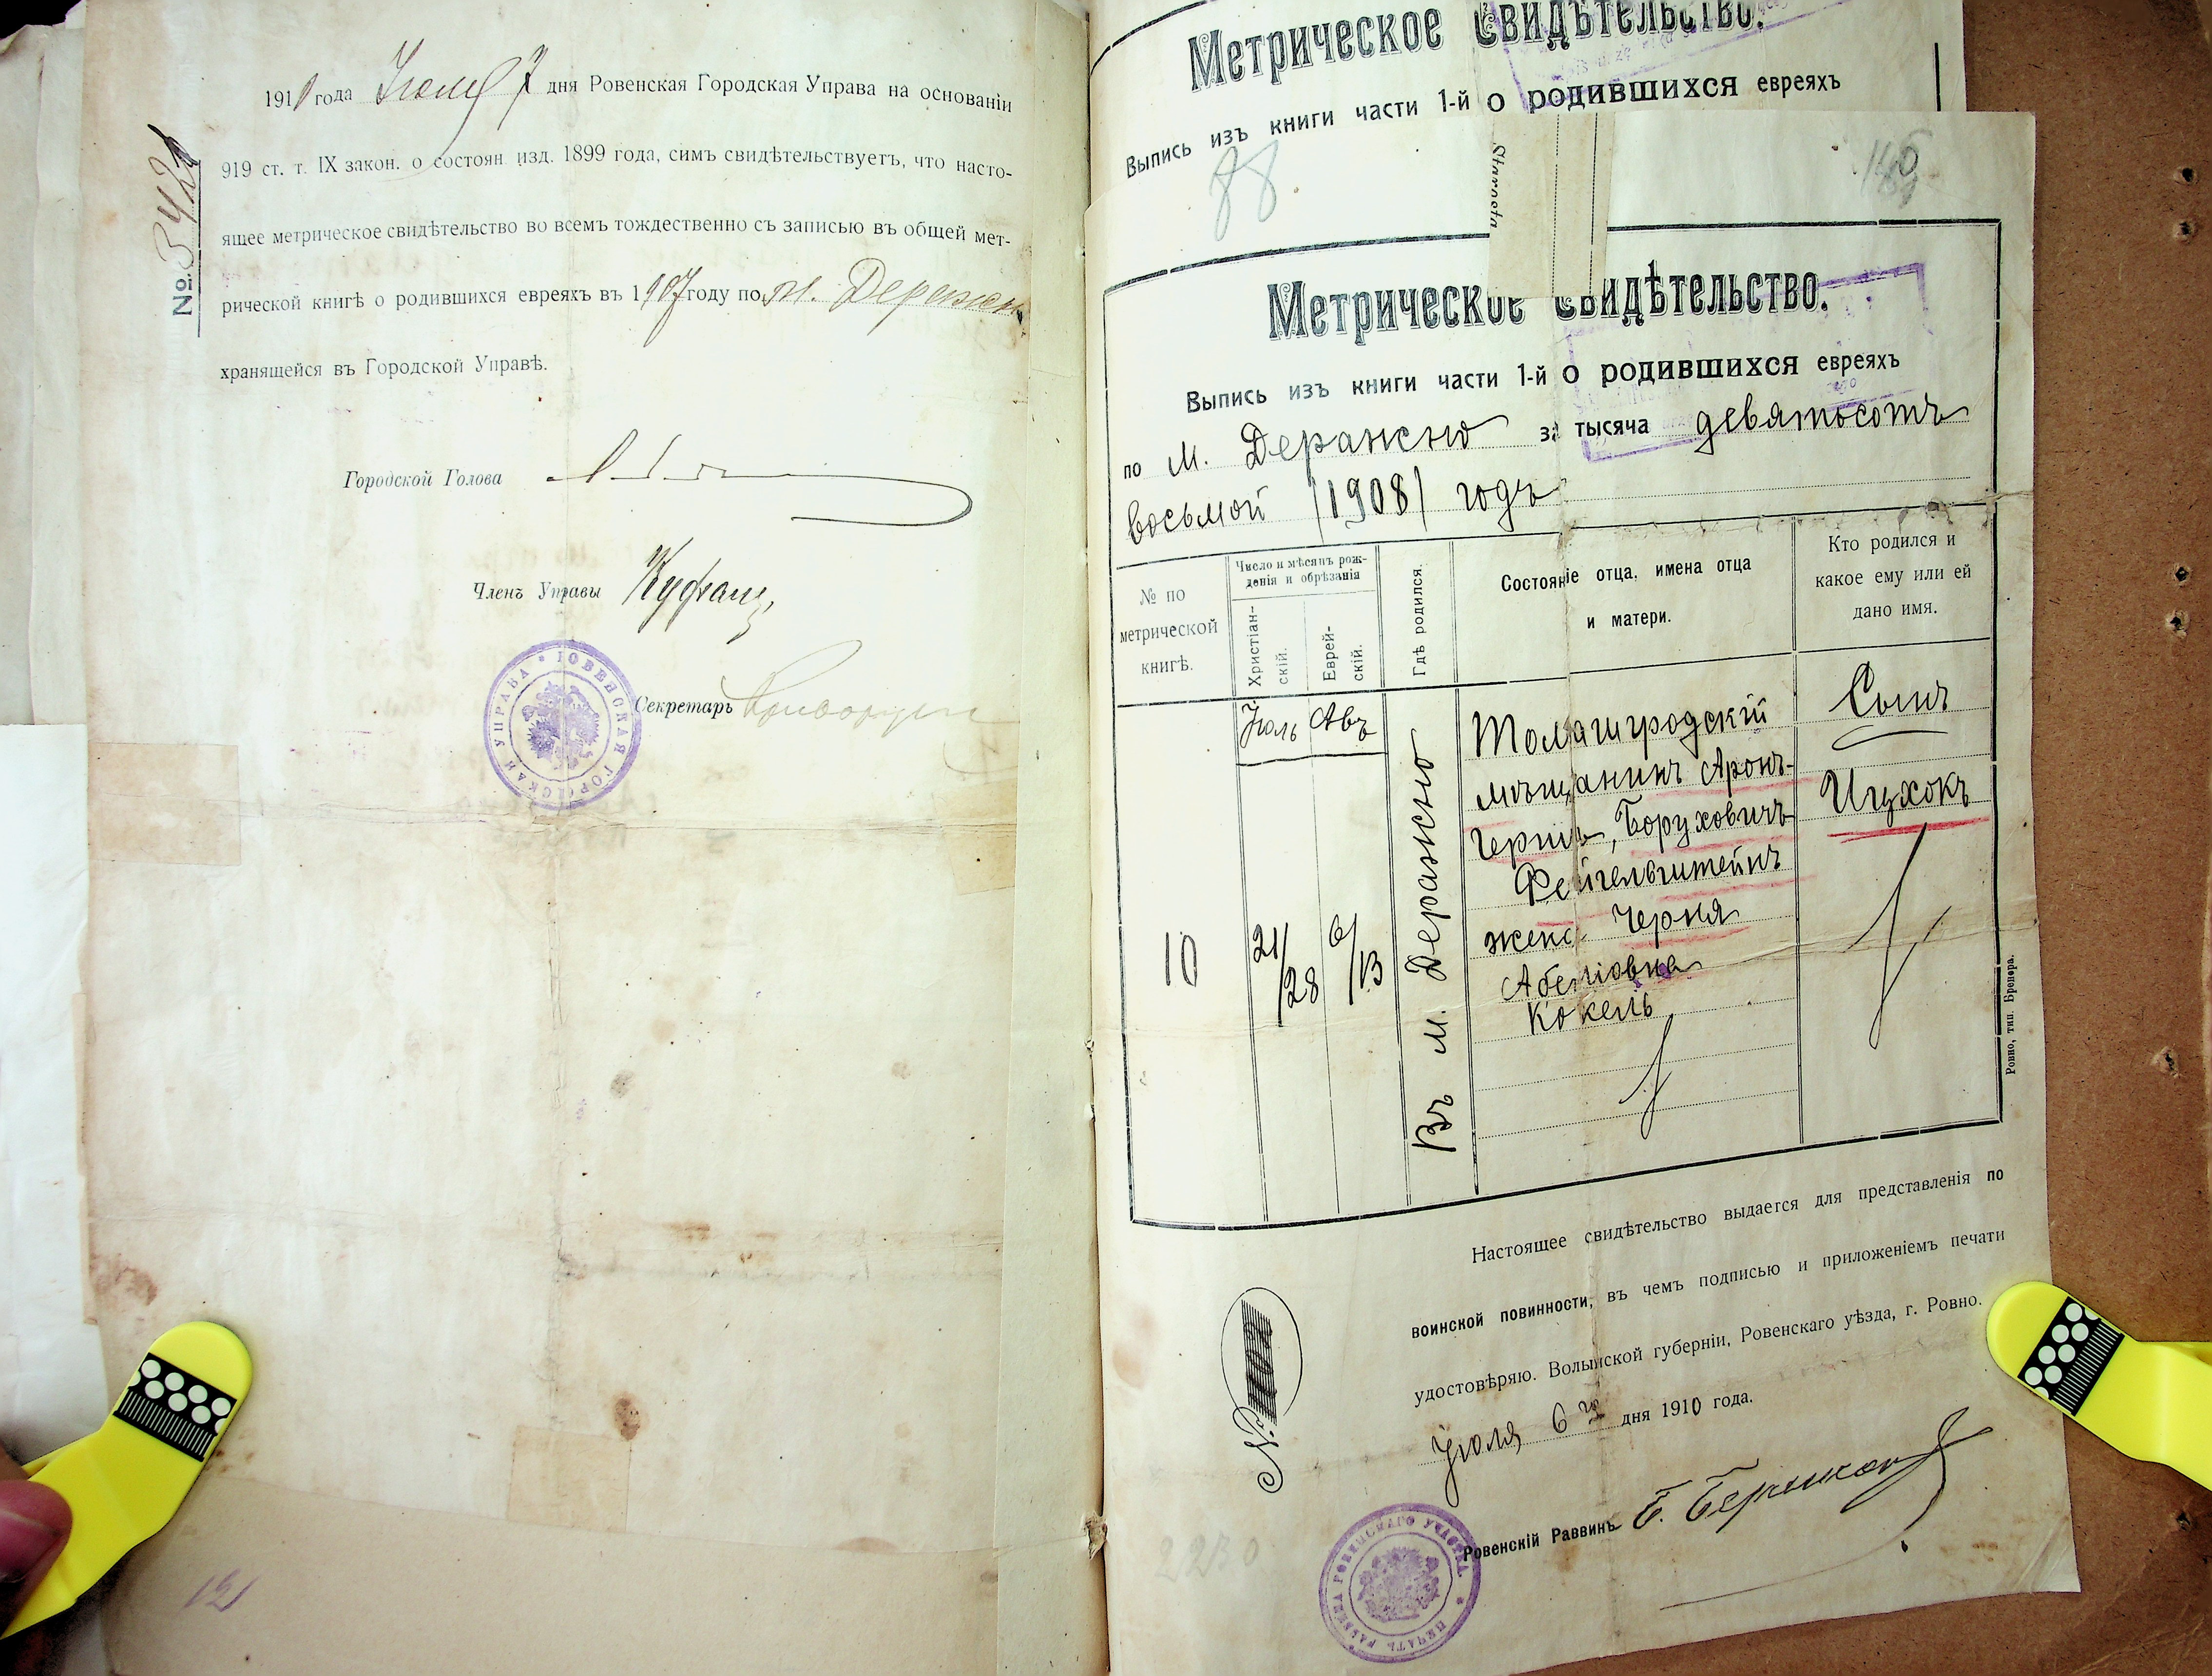 1910 года Іюля 7 дня Ровенская Городская Управа на основаніи
919 ст. т. IX закон. о состоян. изд. 1899 года, симъ свидѣтельствуетъ, что насто-
ящее метрическое свидѣтельство во всемъ тождественно съ записью въ общей мет-
рической книгѣ о родившихся евреяхъ въ 1907 году по м. Деражн
хранящейся въ Городской Управѣ.
№ 3421
Городской Голова
Членъ Управы
Секретарь
РОВЕНСКАЯ ГОРОДСКАЯ УПРАВА
121
Метрическое Свидѣтельство.
Выпись изъ книги части 1-й о родившихся евреяхъ
88
Starosta
Метрическое Свидѣтельство.
Выпись изъ книги части 1-й о родившихся евреяхъ
по м. Деражно за тысяча девятьсотъ
восьмой /1908/ годъ
№ по метрической книгѣ.
Число и мѣсяцъ рож-
денія и обрѣзанія
Христіан-
скій.
Еврей-
скій.
Гдѣ родился.
Состояніе отца, имена отца
и матери.
Кто родился и
какое ему или ей
дано имя.
10
Іюль
21/28
Авъ
6/13
Въ м. Деражно
Томашгродскій
мѣщанинъ Аронъ-
Гершъ, Боруховичъ
Фейгельштейнъ
жена Черня
Абелiовна
Кокель
Сынъ
Ицхокъ
Ровно, тип. Бренера.
Настоящее свидѣтельство выдается для представленія по
воинской повинности, въ чемъ подписью и приложеніемъ печати
удостовѣряю. Волынской губерніи, Ровенскаго уѣзда, г. Ровно.
Іюля 6 го дня 1910 года.
№
Ровенскій Раввинъ
ПЕЧАТЬ РАВВИНА РОВЕНСКАГО УЧАСТКА
2230